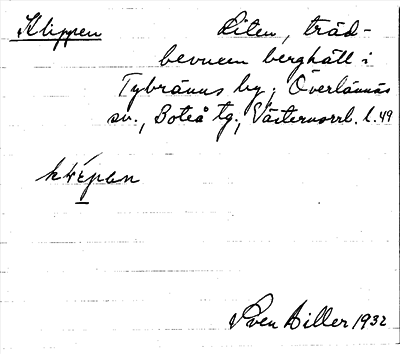 Klippen Liten, träd-
bevuxen berghäll i
Tybränns by, Överlännäs
sn., Boteå tg., Västernorrl. l. 49
klipen
Sven Hiller 1932